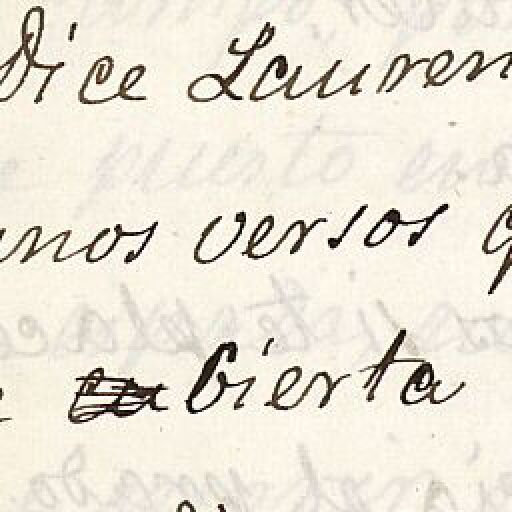 Dice Lauren
unos versos q
cierta